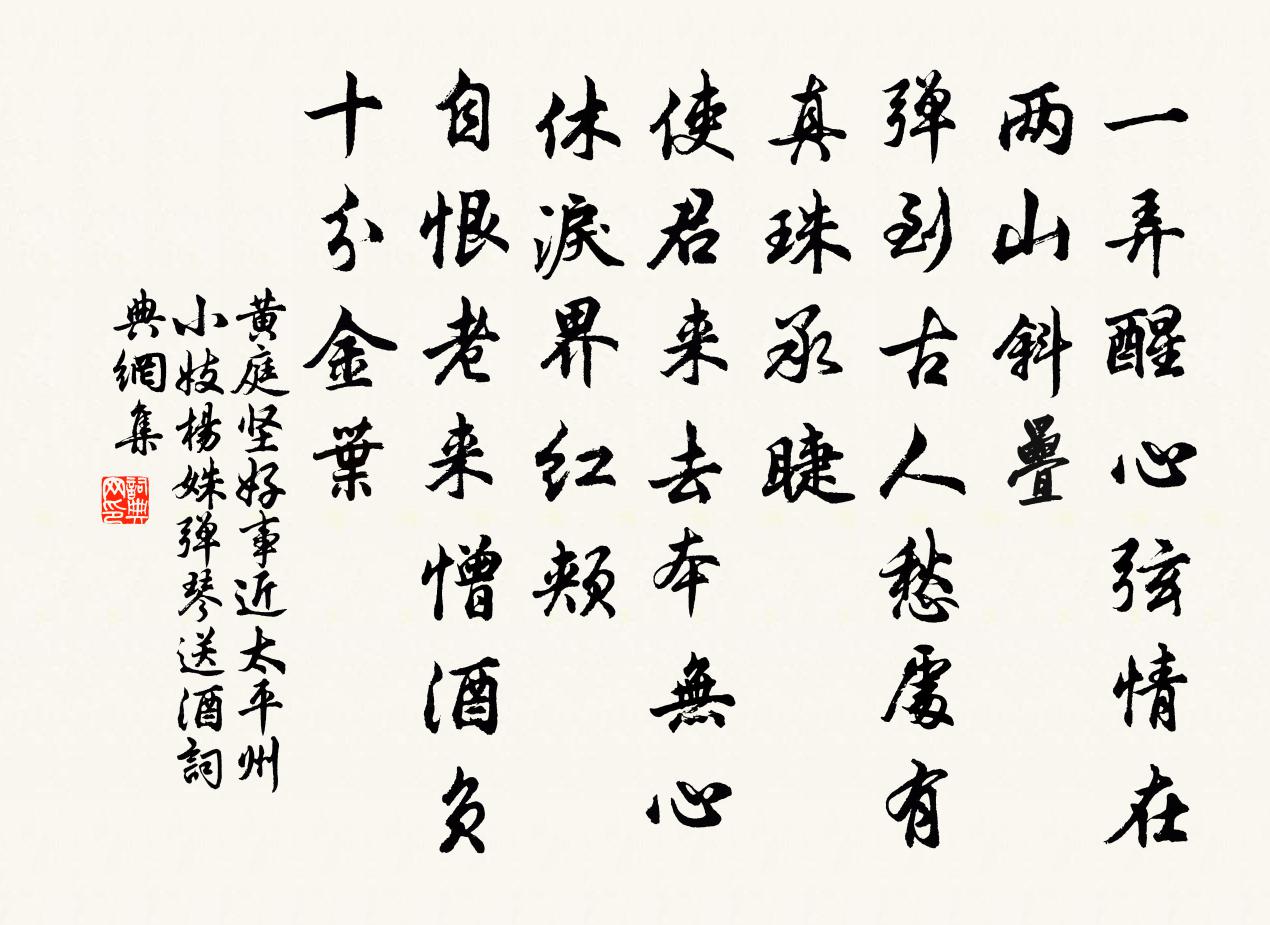 一弄醒心弦情在
两山斜疊
弹到古人愁處有
真珠承睫
使君来去本無心
休淚界红颊
自恨老来憎酒负
十分金葉
黄庭坚好事近太平州
小妓楊姝弹琴送酒詞
典網集
詞典
网印